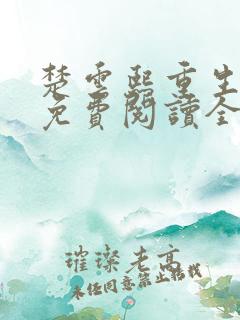 楚云熙重生
免費閱讀全
璀璨老高
未经同意禁止转载